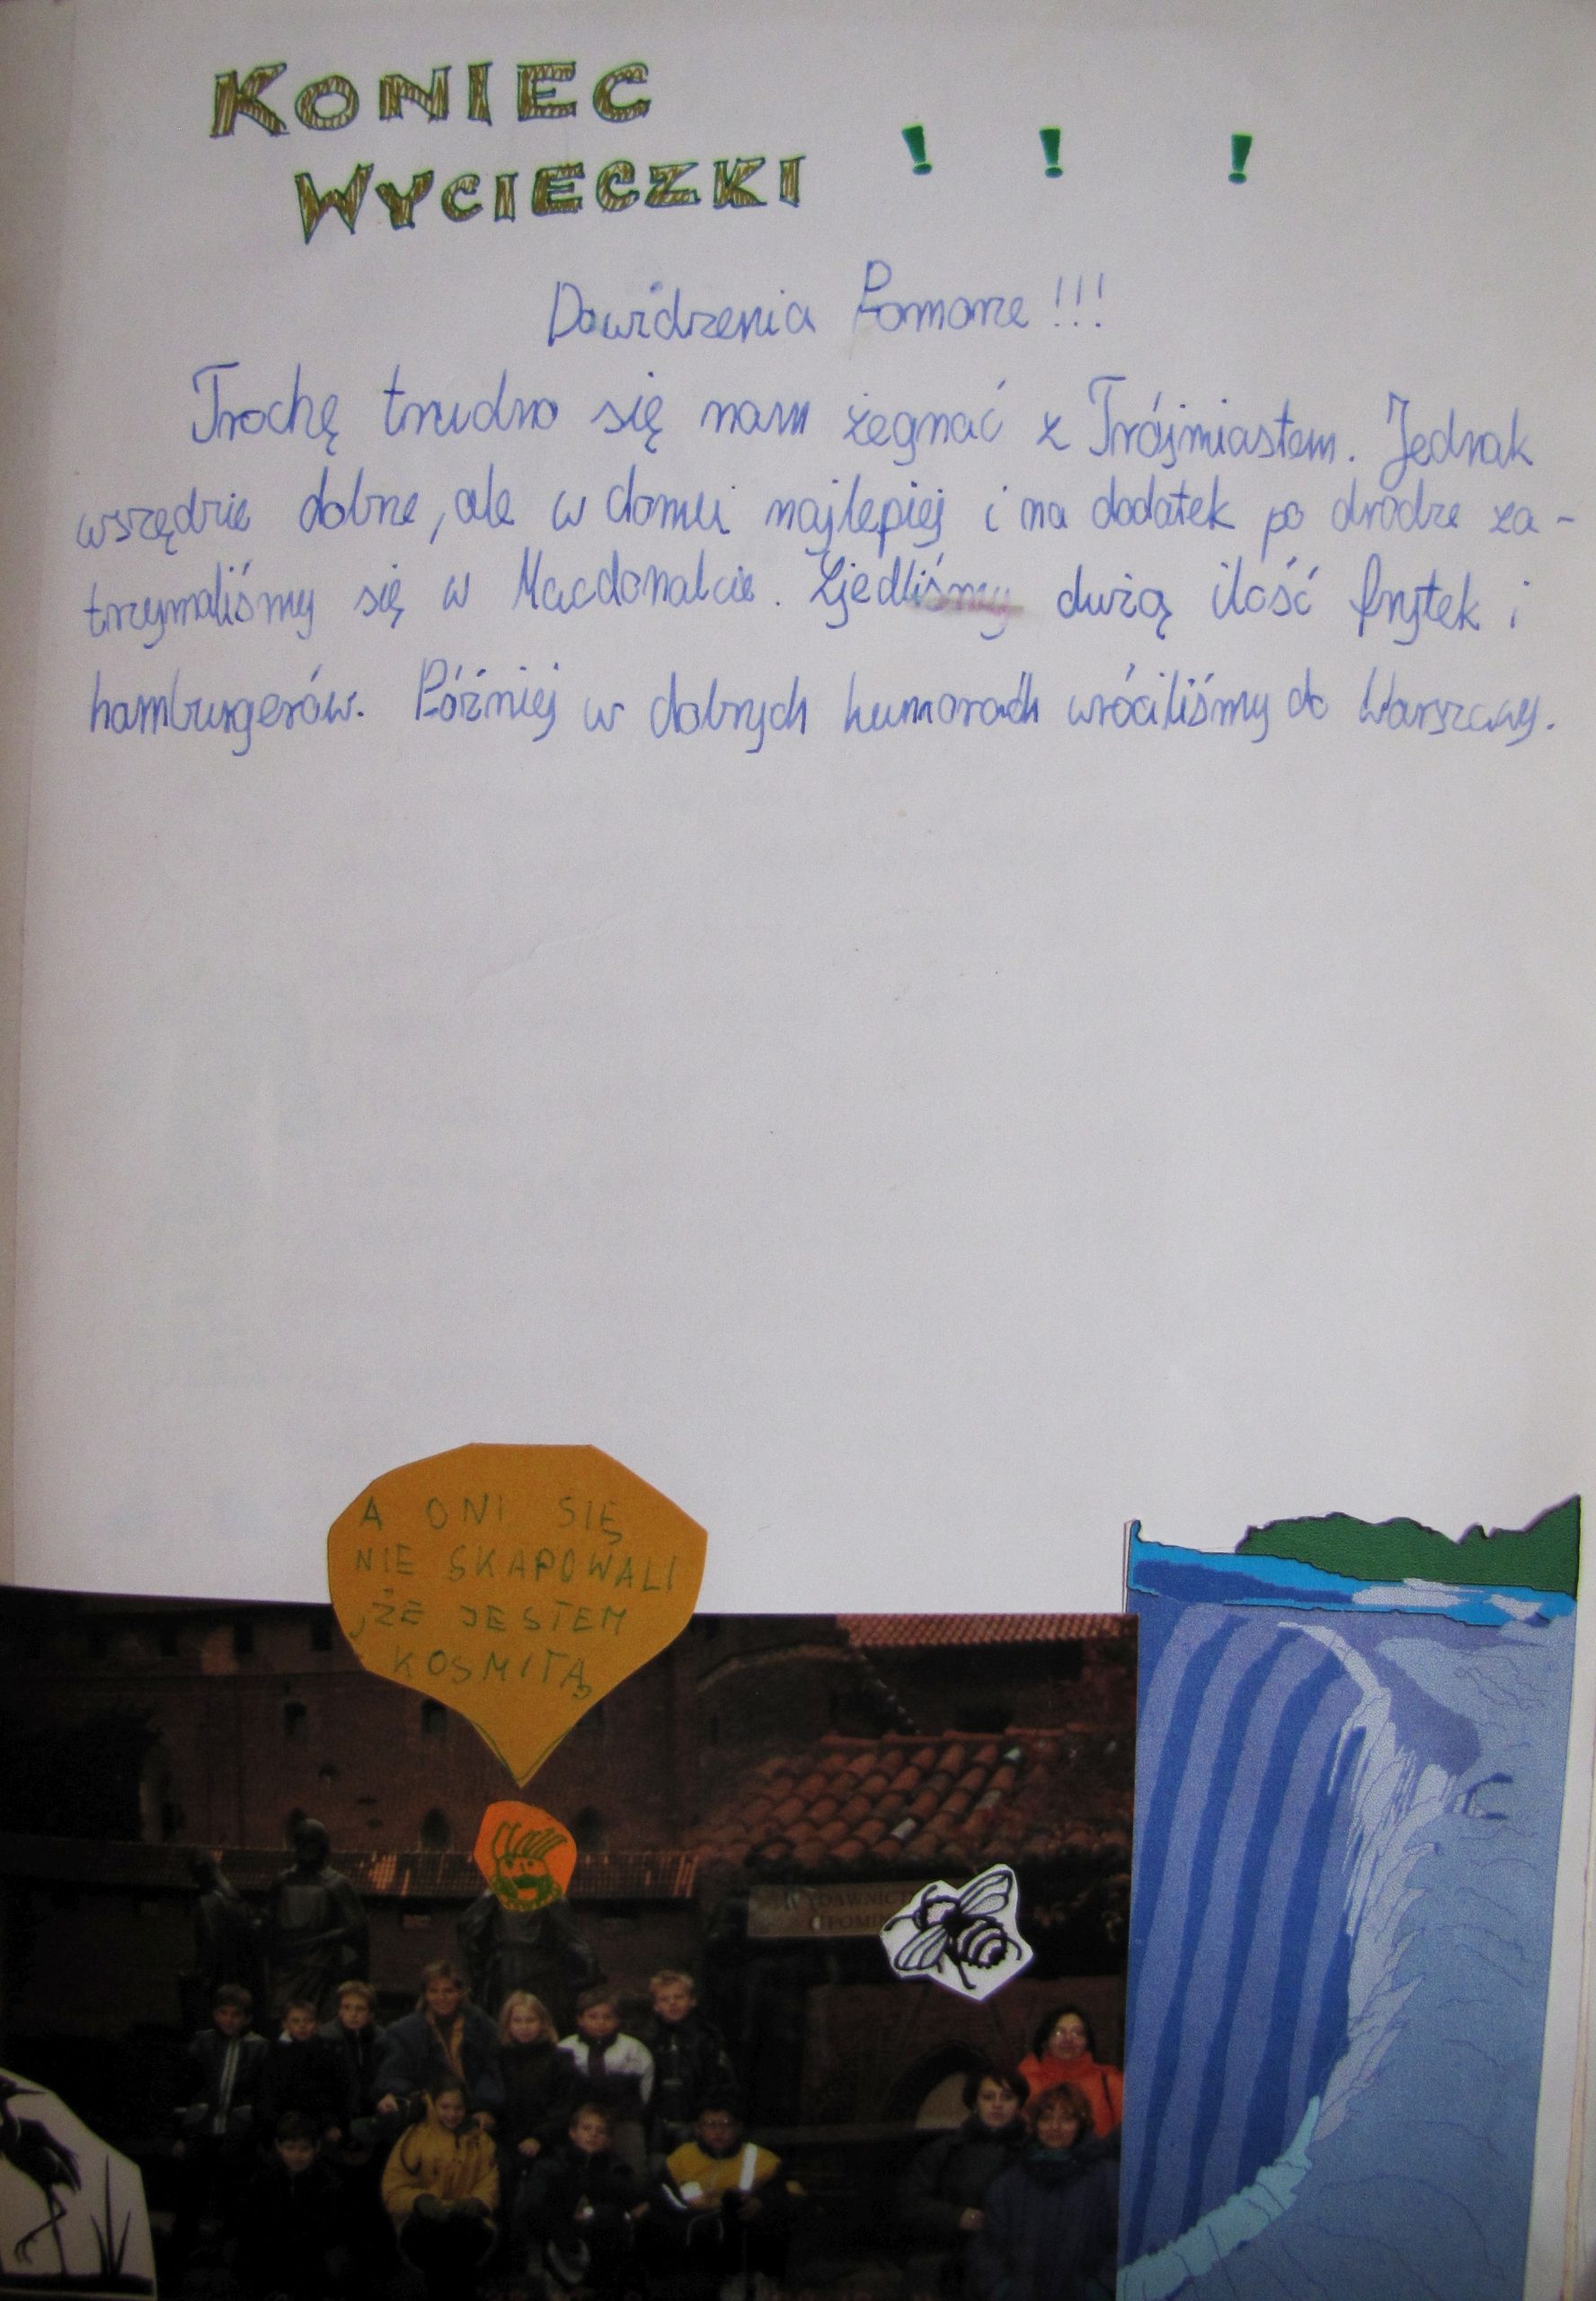 KONIEC
WYCIECZKI ! ! !
Dowidzenia Pomorze !!!
Trochę trudno się nam żegnać z Trójmiastem. Jednak
wszędzie dobrze, ale w domu najlepiej i na dodatek po drodze za-
trzymaliśmy się w Macdonaldzie. Zjedliśmy dużą ilość frytek i
hamburgerów. Później w dobrych humorach wróciliśmy do Warszawy.
A ONI SIĘ
NIE SKAPOWALI
, ŻE JESTEM
KOSMITĄ